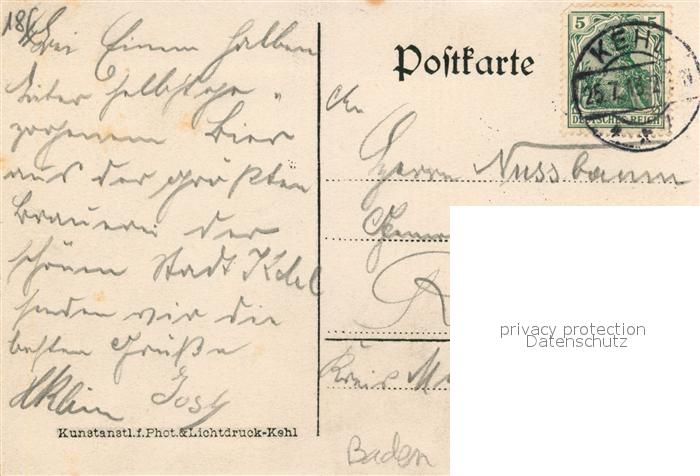 18
Bei Einem halben
Liter selbstge-
zogenem Bier
aus der größten
Brauerei der
schönen Stadt Kehl
senden wir die
besten Grüße
HKlein Josy
Kunstanstl.f.Phot.&Lichtdruck-Kehl
Postkarte
5 5
DEUTSCHES REICH
KEHL
25.7.
An
Herrn Nussbaum
Kreis
Baden
privacy protection
Datenschutz